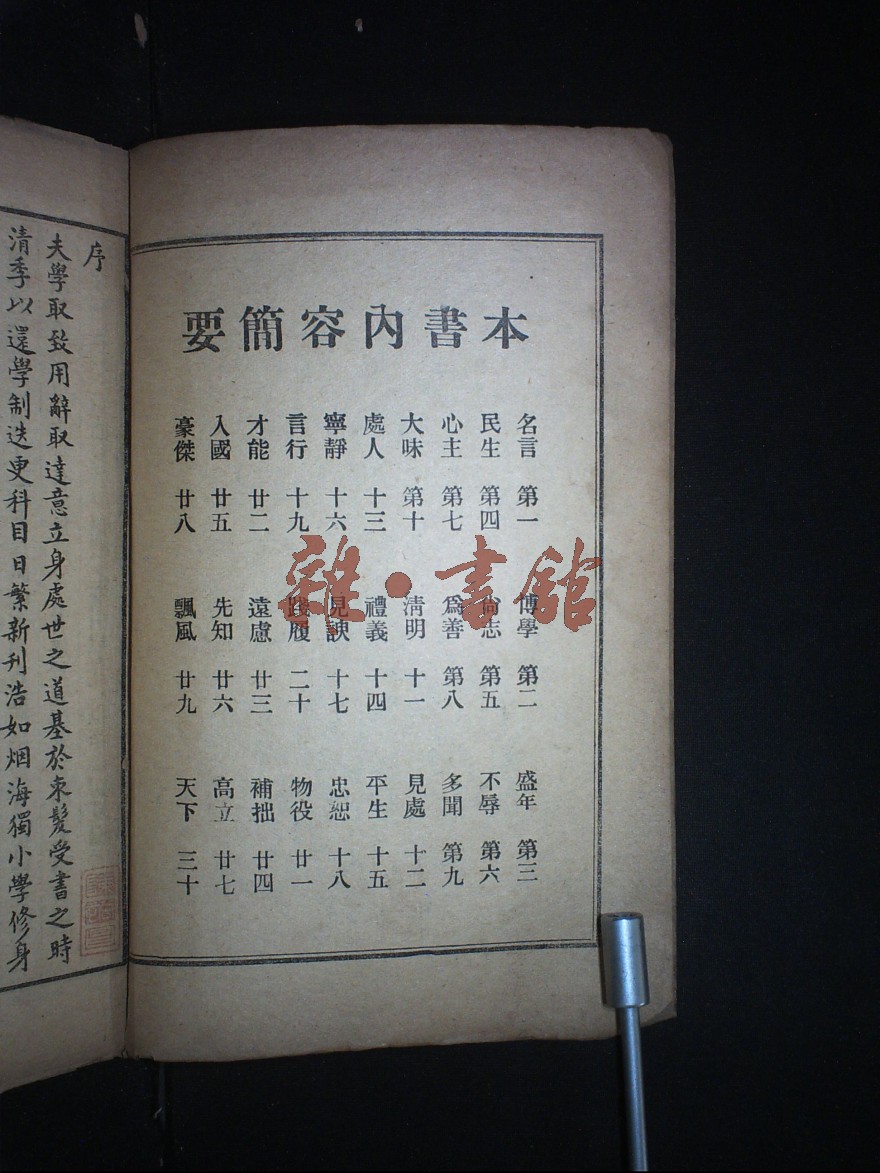 本書內容簡要
名言 第一 博學 第二 盛年 第三
民生 第四 尙志 第五 不辱 第六
心主 第七 爲善 第八 多聞 第九
大味 第十 淸明 十一 見處 十二
處人 十三 禮義 十四 平生 十五
寧靜 十六 見諛 十七 忠恕 十八
言行 十九 踐履 二十 物役 廿一
才能 廿二 遠慮 廿三 補拙 廿四
入國 廿五 先知 廿六 高立 廿七
豪傑 廿八 飄風 廿九 天下 三十
雜·書館
序
夫學取致用辭取達意立身處世之道基於束髮受書之時
清季以還學制迭更科目日繁新刊浩如烟海獨小學修身